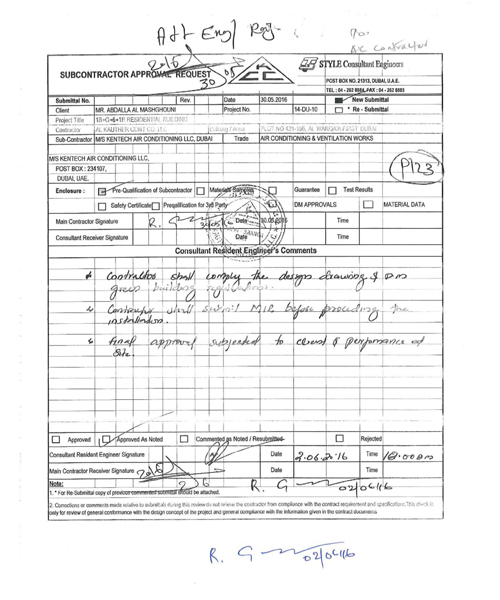 Att Engl
A/c contracted
2016
STYLE Consultant Engineers
SUBCONTRACTOR APPROVAL REQUEST
30
POST BOX NO. 21313, DUBAI, U.A.E.
Submittal No. Rev. Date 30.05.2016 New Submittal
Client MR. ABDALLA AL MASHGHOUNI Project No. 14-DU-10 * Re - Submittal
Project Title RESIDENTIAL BUILDING
Contractor AL KAUTHER CONT CO LLC DUBAI
Sub-Contractor M/S KENTECH AIR CONDITIONING LLC, DUBAI Trade AIR CONDITIONING & VENTILATION WORKS
M/S KENTECH AIR CONDITIONING LLC,
POST BOX : 234107,
DUBAI, UAE.
P123
Enclosure : Pre-Qualification of Subcontractor Materials Samples Guarantee Test Results
Safety Certificate Prequalification for 3rd Party DM APPROVALS MATERIAL DATA
Main Contractor Signature Date 30.05.2016 Time
Consultant Receiver Signature Date Time
Consultant Resident Engineer's Comments
Contractor shall comply the design drawing & DM
green building regulations.
Contractor shall submit MIR before proceeding the
installation.
final approval subjected to performance at
site.
Approved Approved As Noted Commented as Noted / Resubmitted Rejected
Consultant Resident Engineer Signature Date 2.06.2016 Time
Main Contractor Receiver Signature 2016 Date Time
Note: 2/6 R. G 02/06/16
1. * For Re-Submittal copy of previous commented submittal should be attached.
2. Corrections or comments made relative to submittals during this review do not relieve the contractor from compliance with the contract requirement and specifications. This check is
only for review of general conformance with the design concept of the project and general compliance with the information given in the contract documents
R. G 02/06/16